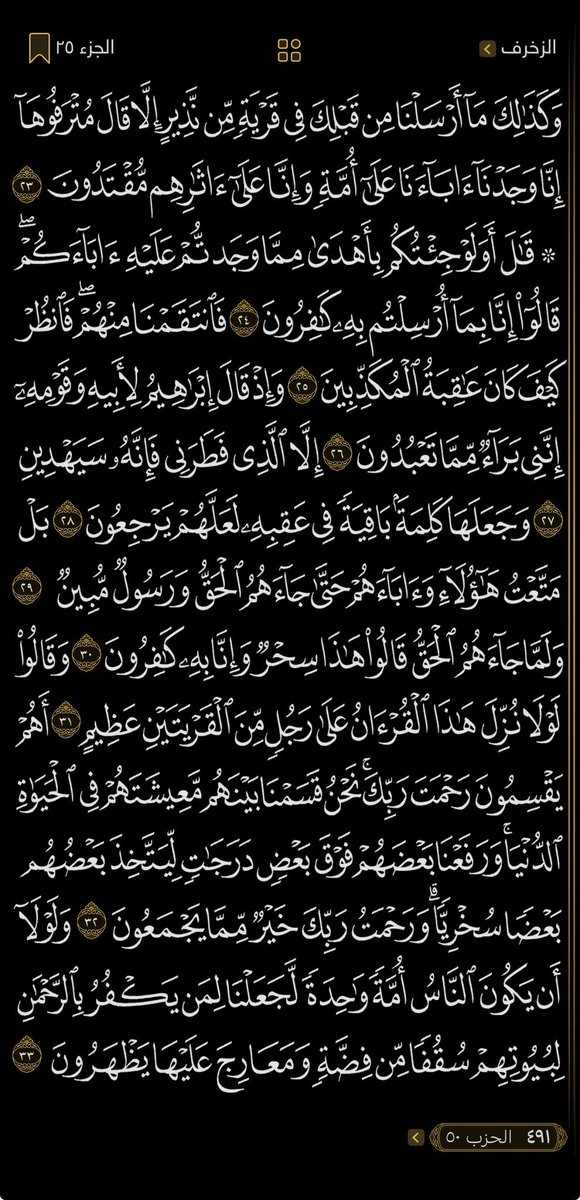 الزخرف
الجزء ٢٥
وَكَذَٰلِكَ مَآ أَرْسَلْنَا مِن قَبْلِكَ فِى قَرْيَةٍ مِّن نَّذِيرٍ إِلَّا قَالَ مُتْرَفُوهَآ
إِنَّا وَجَدْنَآ ءَابَآءَنَا عَلَىٰٓ أُمَّةٍ وَإِنَّا عَلَىٰٓ ءَاثَـٰرِهِم مُّقْتَدُونَ ٢٣
۞ قَـٰلَ أَوَلَوْ جِئْتُكُم بِأَهْدَىٰ مِمَّا وَجَدتُّمْ عَلَيْهِ ءَابَآءَكُمْ ۖ
قَالُوٓا۟ إِنَّا بِمَآ أُرْسِلْتُم بِهِۦ كَـٰفِرُونَ ٢٤ فَٱنتَقَمْنَا مِنْهُمْ ۖ فَٱنظُرْ
كَيْفَ كَانَ عَـٰقِبَةُ ٱلْمُكَذِّبِينَ ٢٥ وَإِذْ قَالَ إِبْرَٰهِيمُ لِأَبِيهِ وَقَوْمِهِۦٓ
إِنَّنِى بَرَآءٌ مِّمَّا تَعْبُدُونَ ٢٦ إِلَّا ٱلَّذِى فَطَرَنِى فَإِنَّهُۥ سَيَهْدِينِ
٢٧ وَجَعَلَهَا كَلِمَةًۢ بَاقِيَةً فِى عَقِبِهِۦ لَعَلَّهُمْ يَرْجِعُونَ ٢٨ بَلْ
مَتَّعْتُ هَـٰٓؤُلَآءِ وَءَابَآءَهُمْ حَتَّىٰ جَآءَهُمُ ٱلْحَقُّ وَرَسُولٌ مُّبِينٌ ٢٩
وَلَمَّا جَآءَهُمُ ٱلْحَقُّ قَالُوا۟ هَـٰذَا سِحْرٌ وَإِنَّا بِهِۦ كَـٰفِرُونَ ٣٠ وَقَالُوا۟
لَوْلَا نُزِّلَ هَـٰذَا ٱلْقُرْءَانُ عَلَىٰ رَجُلٍ مِّنَ ٱلْقَرْيَتَيْنِ عَظِيمٍ ٣١ أَهُمْ
يَقْسِمُونَ رَحْمَتَ رَبِّكَ ۚ نَحْنُ قَسَمْنَا بَيْنَهُم مَّعِيشَتَهُمْ فِى ٱلْحَيَوٰةِ
ٱلدُّنْيَا ۚ وَرَفَعْنَا بَعْضَهُمْ فَوْقَ بَعْضٍ دَرَجَـٰتٍ لِّيَتَّخِذَ بَعْضُهُم
بَعْضًا سُخْرِيًّا ۗ وَرَحْمَتُ رَبِّكَ خَيْرٌ مِّمَّا يَجْمَعُونَ ٣٢ وَلَوْلَآ
أَن يَكُونَ ٱلنَّاسُ أُمَّةً وَٰحِدَةً لَّجَعَلْنَا لِمَن يَكْفُرُ بِٱلرَّحْمَـٰنِ
لِبُيُوتِهِمْ سُقُفًا مِّن فِضَّةٍ وَمَعَارِجَ عَلَيْهَا يَظْهَرُونَ ٣٣
٤٩١ الحزب ٥٠